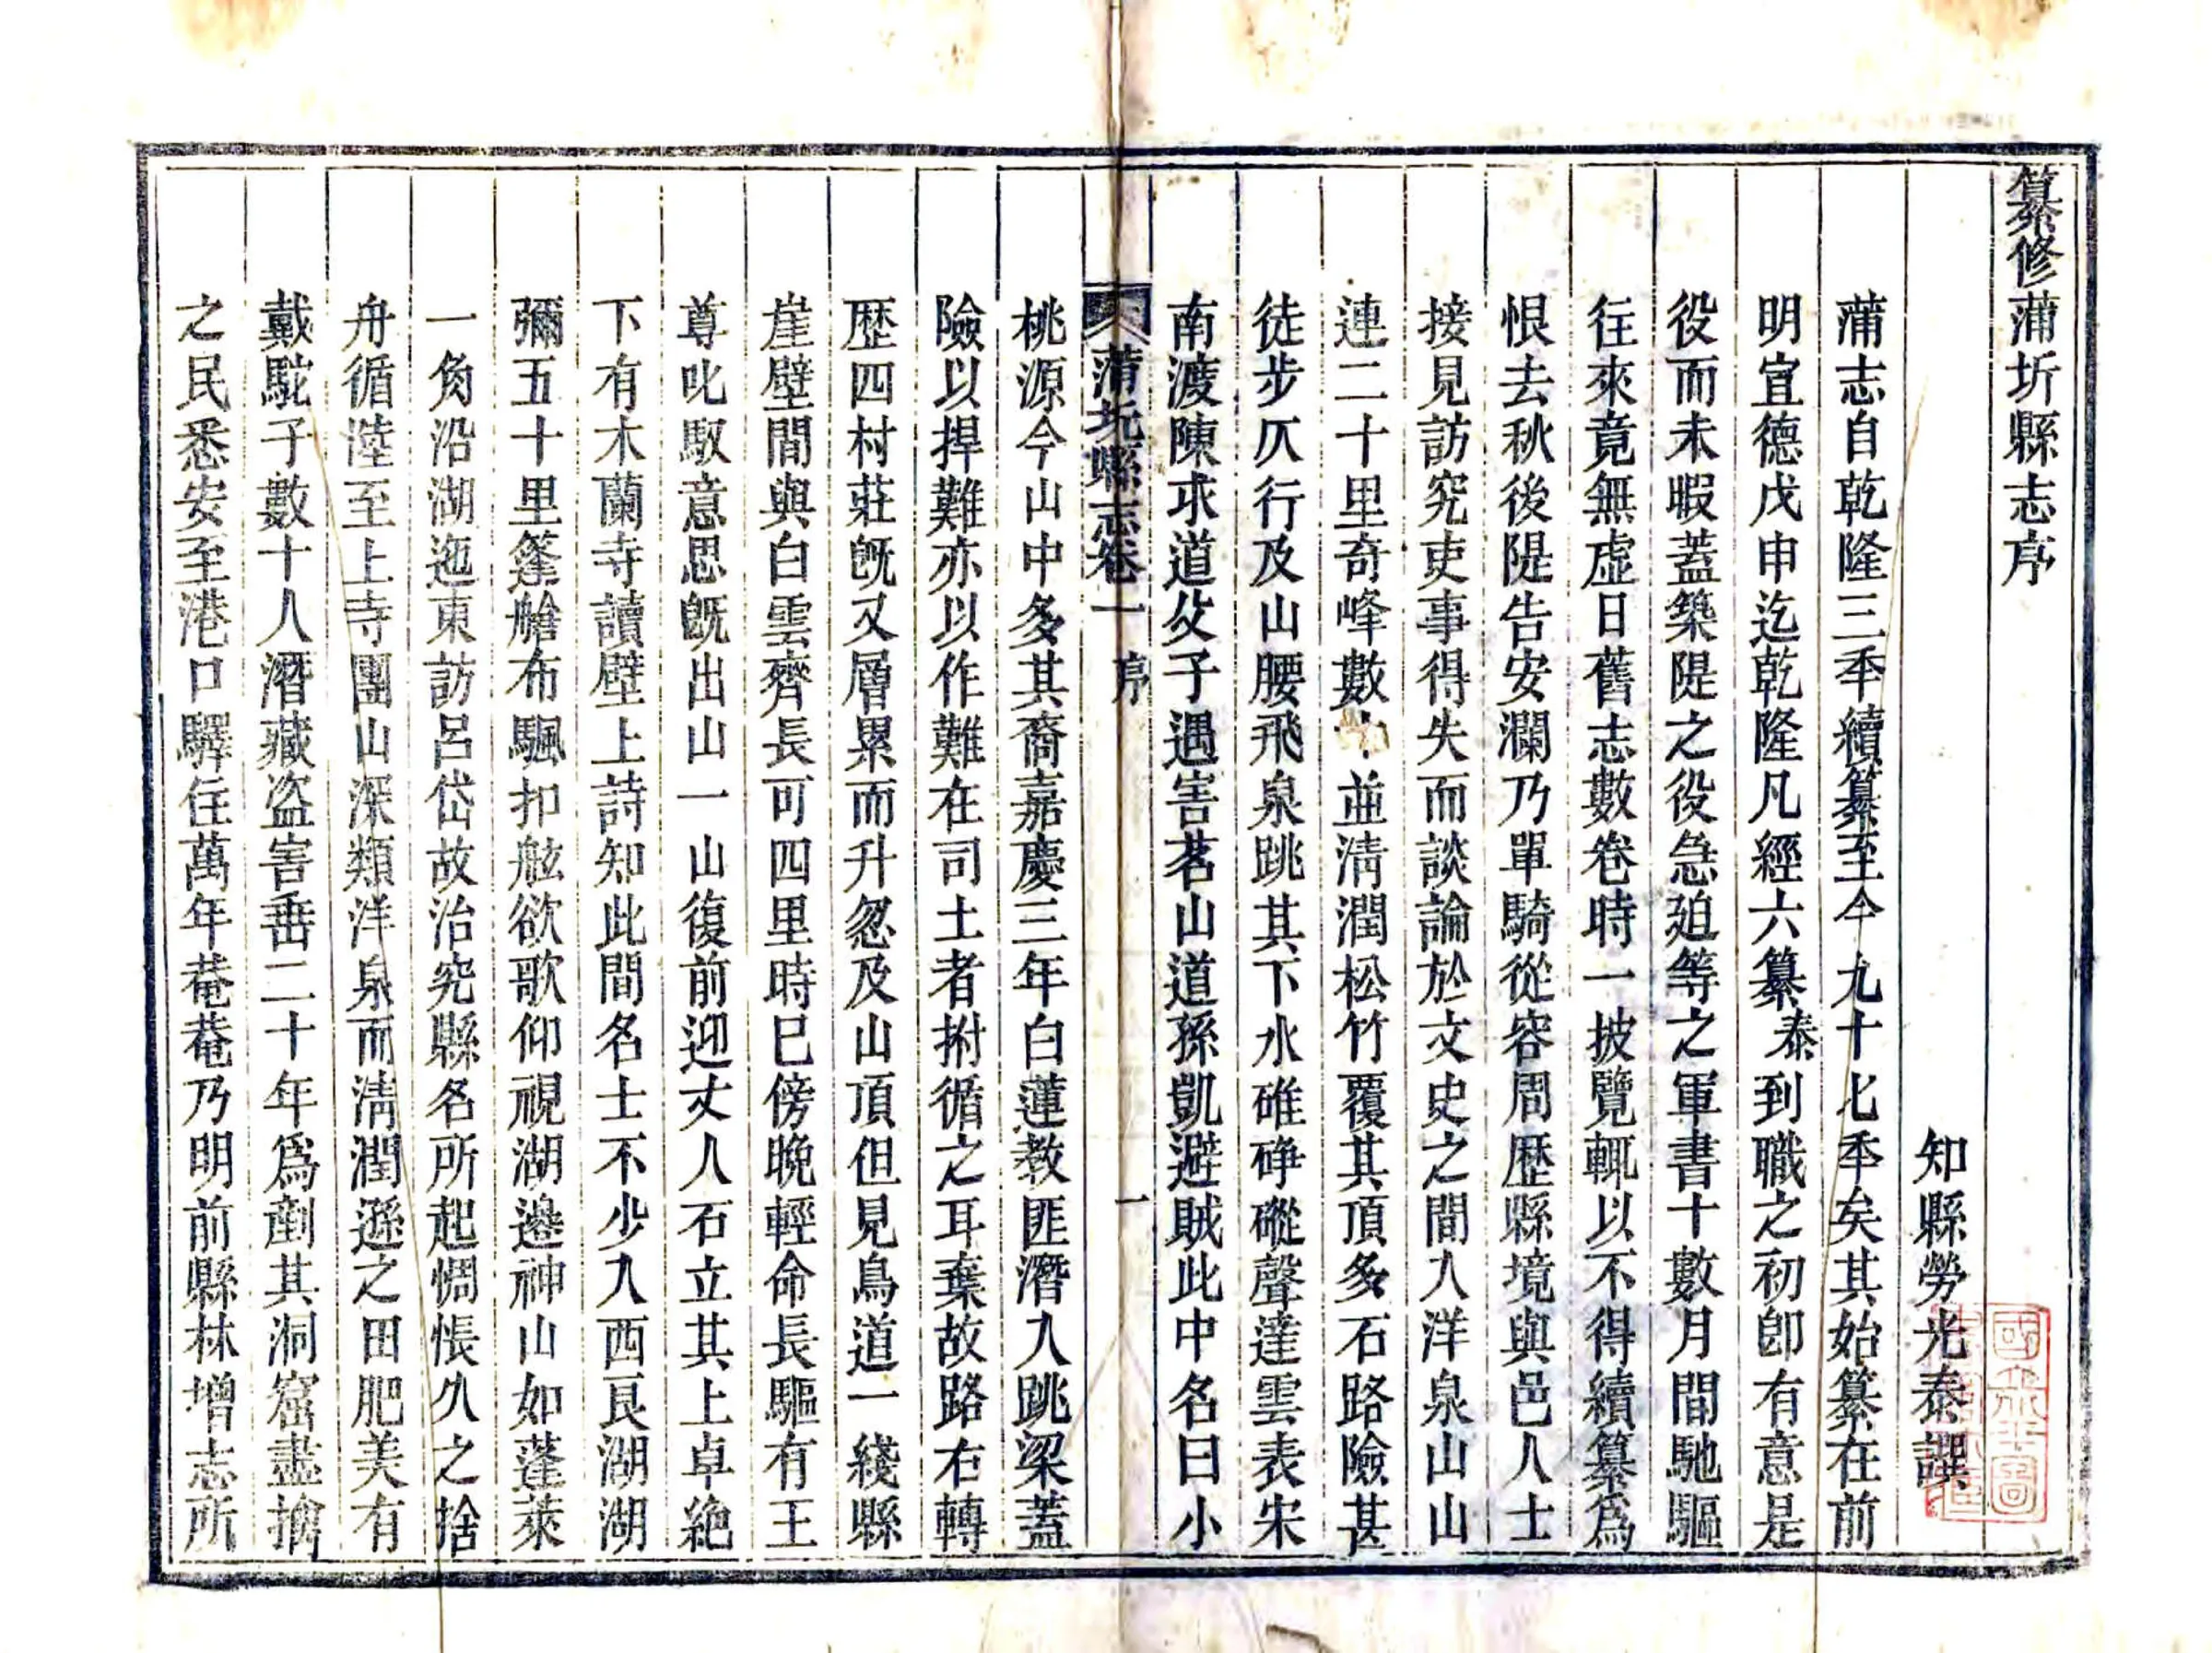 纂修蒲圻縣志序
知縣勞光泰譔
蒲志自乾隆三季續纂至今九十七季矣其始纂在前
明宣德戊申迄乾隆凡經六纂泰到職之初卽有意是
役而未暇蓋築隄之役急廹等之軍書十數月間馳驅
徃來竟無虛日舊志數卷時一披覽輒以不得續纂爲
恨去秋後隄告安瀾乃單騎從容周歴縣境與邑人士
接見訪究吏事得失而談論於文史之間入洋泉山山
連二十里奇峰數十並淸潤松竹覆其頂多石路險甚
徒步仄行及山腰飛泉跳其下水碓碀磫聲達雲表宋
南渡陳求道父子遇害茗山道孫凱避賊此中名曰小
蒲圻縣志卷一 序 一
桃源今山中多其裔嘉慶三年白蓮敎匪潛入跳梁蓋
險以捍難亦以作難在司土者拊循之耳棄故路右轉
歴四村莊旣又層累而升忽及山頂但見鳥道一綫縣
崖壁間與白雲齊長可四里時巳傍晚輕命長驅有王
尊叱馭意思旣出山一山復前迎丈人石立其上卓絶
下有木蘭寺讀壁上詩知此間名士不少入西良湖湖
彌五十里篷艙布颿扣舷欲歌仰視湖邉神山如蓬萊
一角沿湖迤東訪呂岱故治究縣名所起惆悵久之捨
舟循陸至上寺團山深類洋泉而淸潤遜之田肥美有
戴駝子數十人潛藏盜害垂二十年爲剷其洞窟盡擒
之民悉安至港口驛住萬年菴菴乃明前縣林增志所